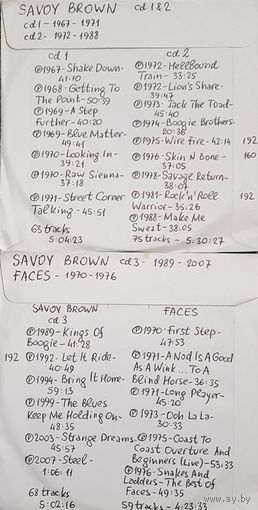 SAVOY BROWN cd 1&2
cd1 - 1967 - 1971
cd2 - 1972 - 1988
cd 1
℗1967 - Shake Down -
41:10
℗1968 - Getting To
The Point - 50:39
℗1969 - A Step
Further - 40:20
℗1969 - Blue Matter -
49:41
℗1970 - Looking In -
39:21
℗1970 - Raw Sienna -
37:18
℗1971 - Street Corner
Talking - 45:51
63 tracks
5:04:23
cd 2
℗1972 - Hellbound
Train - 33:25
℗1972 - Lion's Share -
39:47
℗1973 - Jack The Toad -
45:40
℗1974 - Boogie Brothers -
20:36
℗1975 - Wire fire - 42:14 192
℗1976 - Skin N Bone - 160
37:05
℗1978 - Savage Return -
38:07
℗1981 - Rock'n'Roll 192
Warrior - 35:26
℗1988 - Make Me
Sweat - 38:05
75 tracks - 5:30:27
SAVOY BROWN cd3 - 1989 - 2007
FACES - 1970 - 1976
SAVOY BROWN
cd 3
℗1989 - Kings Of
Boogie - 41:28
192 ℗1992 - Let It Ride -
40:49
℗1994 - Bring It Home -
59:13
℗1999 - The Blues
Keep Me Holding On -
48:35
℗2003 - Strange Dreams -
45:57
℗2007 - Steel -
1:06:11
68 tracks
5:02:16
FACES
℗1970 - First Step -
47:53
℗1971 - A Nod Is A Good
As A Wink... To A
Blind Horse - 36:35
℗1971 - Long Player -
45:20
℗1973 - Ooh La La -
30:33
℗1975 - Coast To
Coast Overture And
Beginners (live) - 53:33
℗1976 - Snakes And
Ladders - The Best Of
Faces - 49:35
59 tracks - 4:23:33
www.ay.by